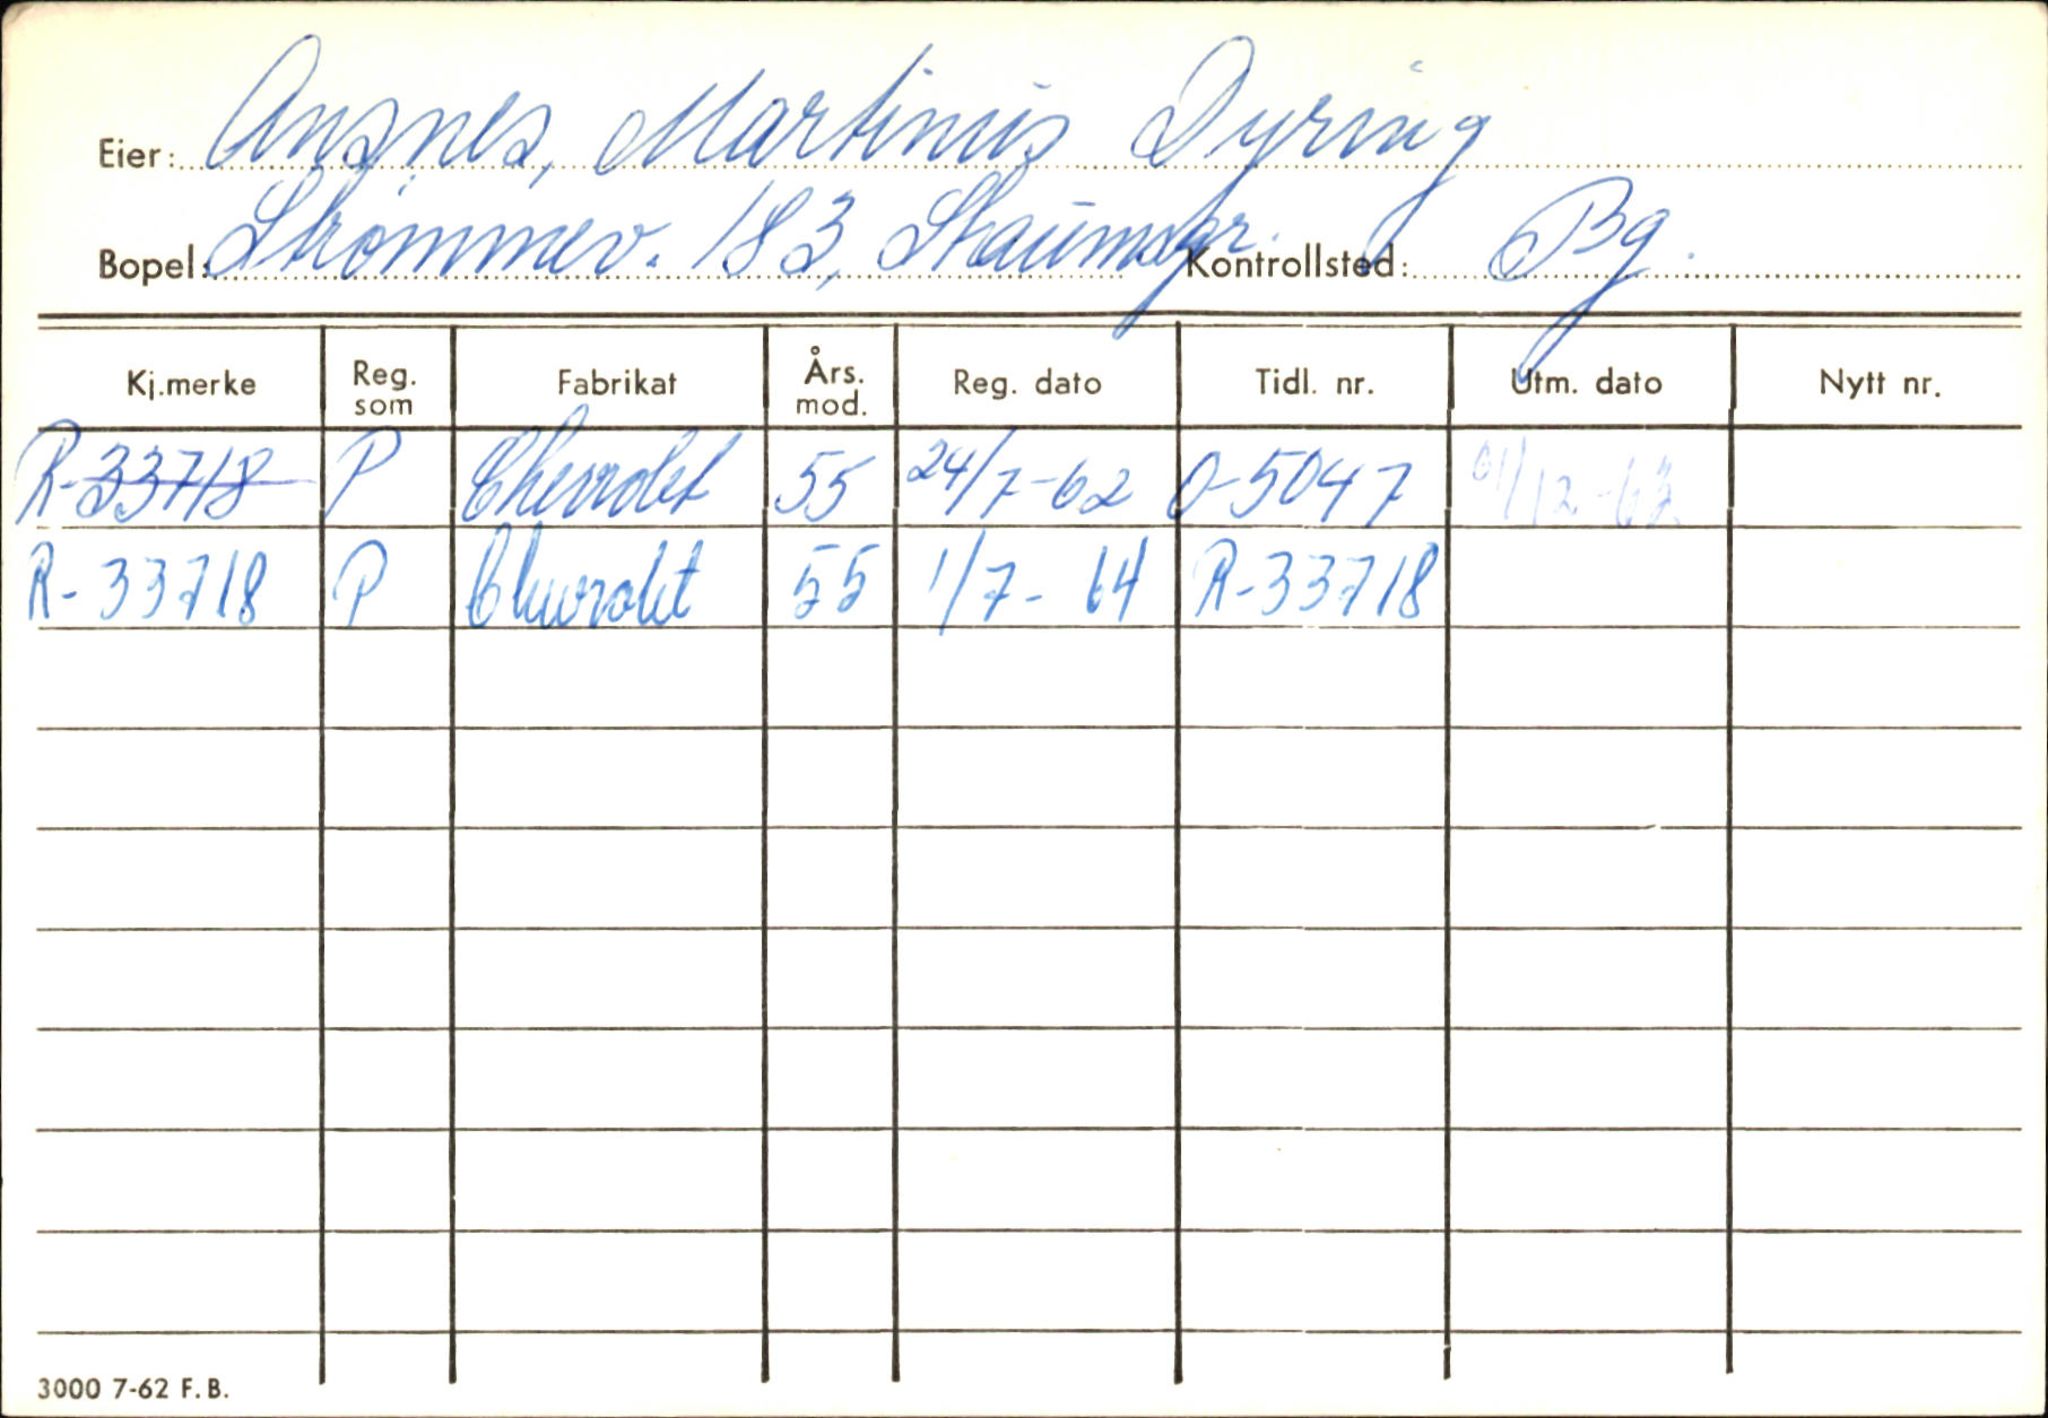 Eier: Ansnes, Martinus Dyring
Bopel: Strømmev. 183, Kontrollsted: Bg.
Kj.merke Reg. som Fabrikat Års. mod. Reg. dato Tidl. nr. Utm. dato Nytt nr.
R-33718 P Chevrolet 55 24/7-62 O-5047
R-33718 P Chevrolet 55 1/7-64 R-33718
3000 7-62 F.B.